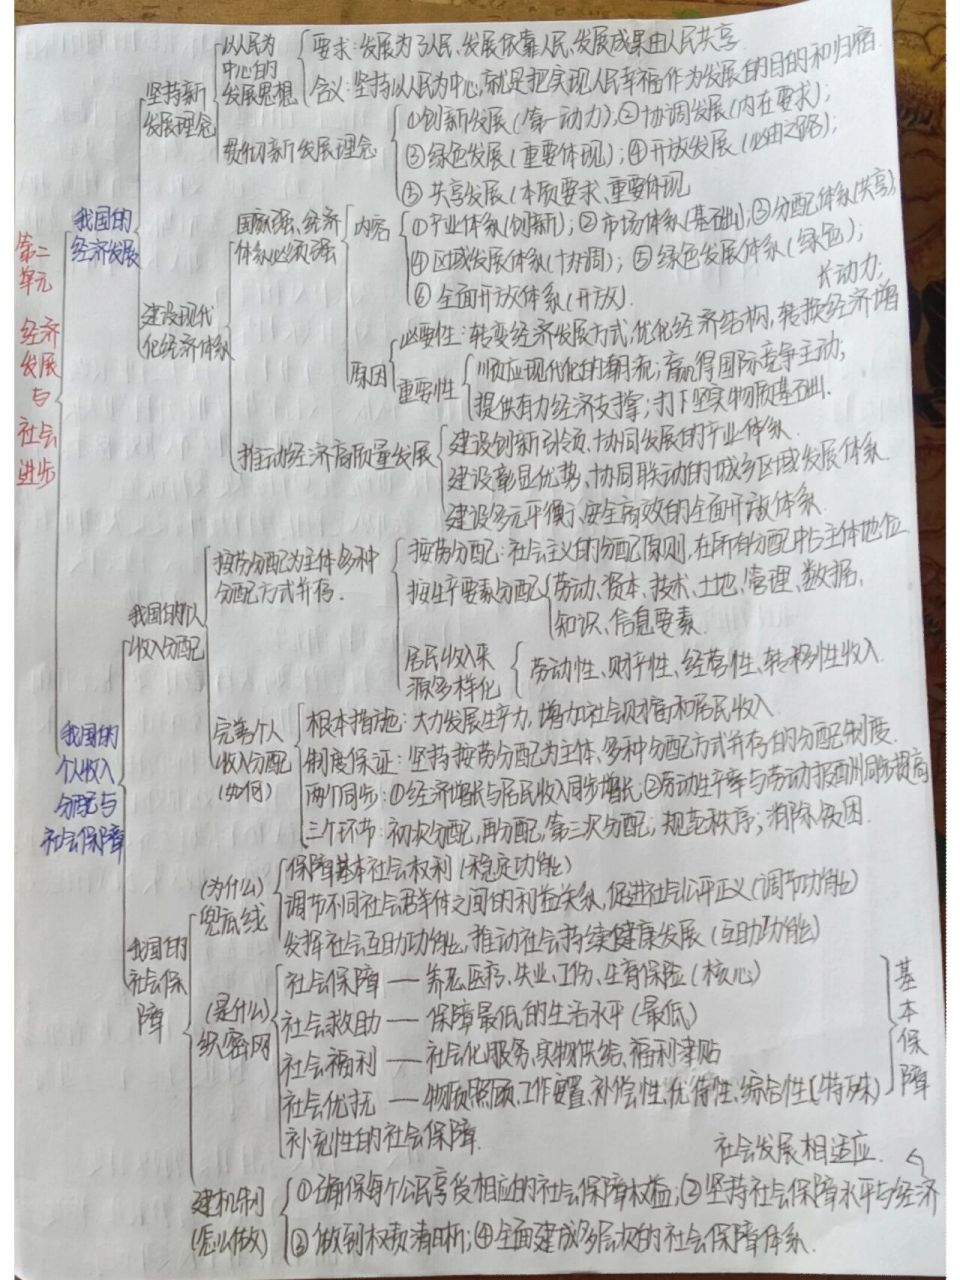 第二单元 经济发展与社会进步
我国的经济发展
坚持新发展理念
以人民为中心的发展思想
要求:发展为了人民、发展依靠人民、发展成果由人民共享.
含义:坚持以人民为中心,就是把实现人民幸福作为发展的目的和归宿.
贯彻新发展理念
①创新发展(第一动力);②协调发展(内在要求);
③绿色发展(重要体现);④开放发展(必由之路);
⑤共享发展(本质要求、重要体现
建设现代化经济体系
国家强、经济体系必须强
内容
①产业体系(创新);②市场体系(基础);③分配体系(共享);
④区域发展体系(协调);⑤绿色发展体系(绿色);
⑥全面开放体系(开放).
原因
必要性:转变经济发展方式,优化经济结构,转换经济增长动力;
重要性
顺应现代化的潮流;赢得国际竞争主动;
提供有力经济支撑;打下坚实物质基础.
推动经济高质量发展
建设创新引领、协同发展的产业体系.
建设彰显优势、协同联动的城乡区域发展体系.
建设多元平衡、安全高效的全面开放体系.
我国的个人收入分配与社会保障
我国的个人收入分配
按劳分配为主体多种分配方式并存.
按劳分配:社会主义的分配原则,在所有分配中占主体地位
按生产要素分配
劳动、资本、技术、土地、管理、数据、
知识、信息要素.
居民收入来源多样化
劳动性、财产性、经营性、转移性收入.
完善个人收入分配(如何)
根本措施:大力发展生产力,增加社会财富和居民收入.
制度保证:坚持按劳分配为主体、多种分配方式并存的分配制度.
两个同步:①经济增长与居民收入同步增长;②劳动生产率与劳动报酬同步提高
三个环节:初次分配,再分配,第三次分配;规范秩序;消除贫困.
我国的社会保障
(为什么)兜底线
保障基本社会权利(稳定功能)
调节不同社会群体之间的利益关系,促进社会公平正义(调节功能)
发挥社会互助功能,推动社会持续健康发展(互助功能)
(是什么)织密网
社会保障——养老医疗、失业、工伤、生育保险(核心)
社会救助——保障最低的生活水平(最低)
社会福利——社会化服务,实物供给、福利津贴
社会优抚——物质照顾,工作安置、补偿性,优待性,综合性(特殊)
补充性的社会保障.
基本保障
建机制(怎么做)
①确保每个公民享受相应的社会保障权益;②坚持社会保障水平与经济社会发展相适应.
③做到权责清晰;④全面建成多层次的社会保障体系.